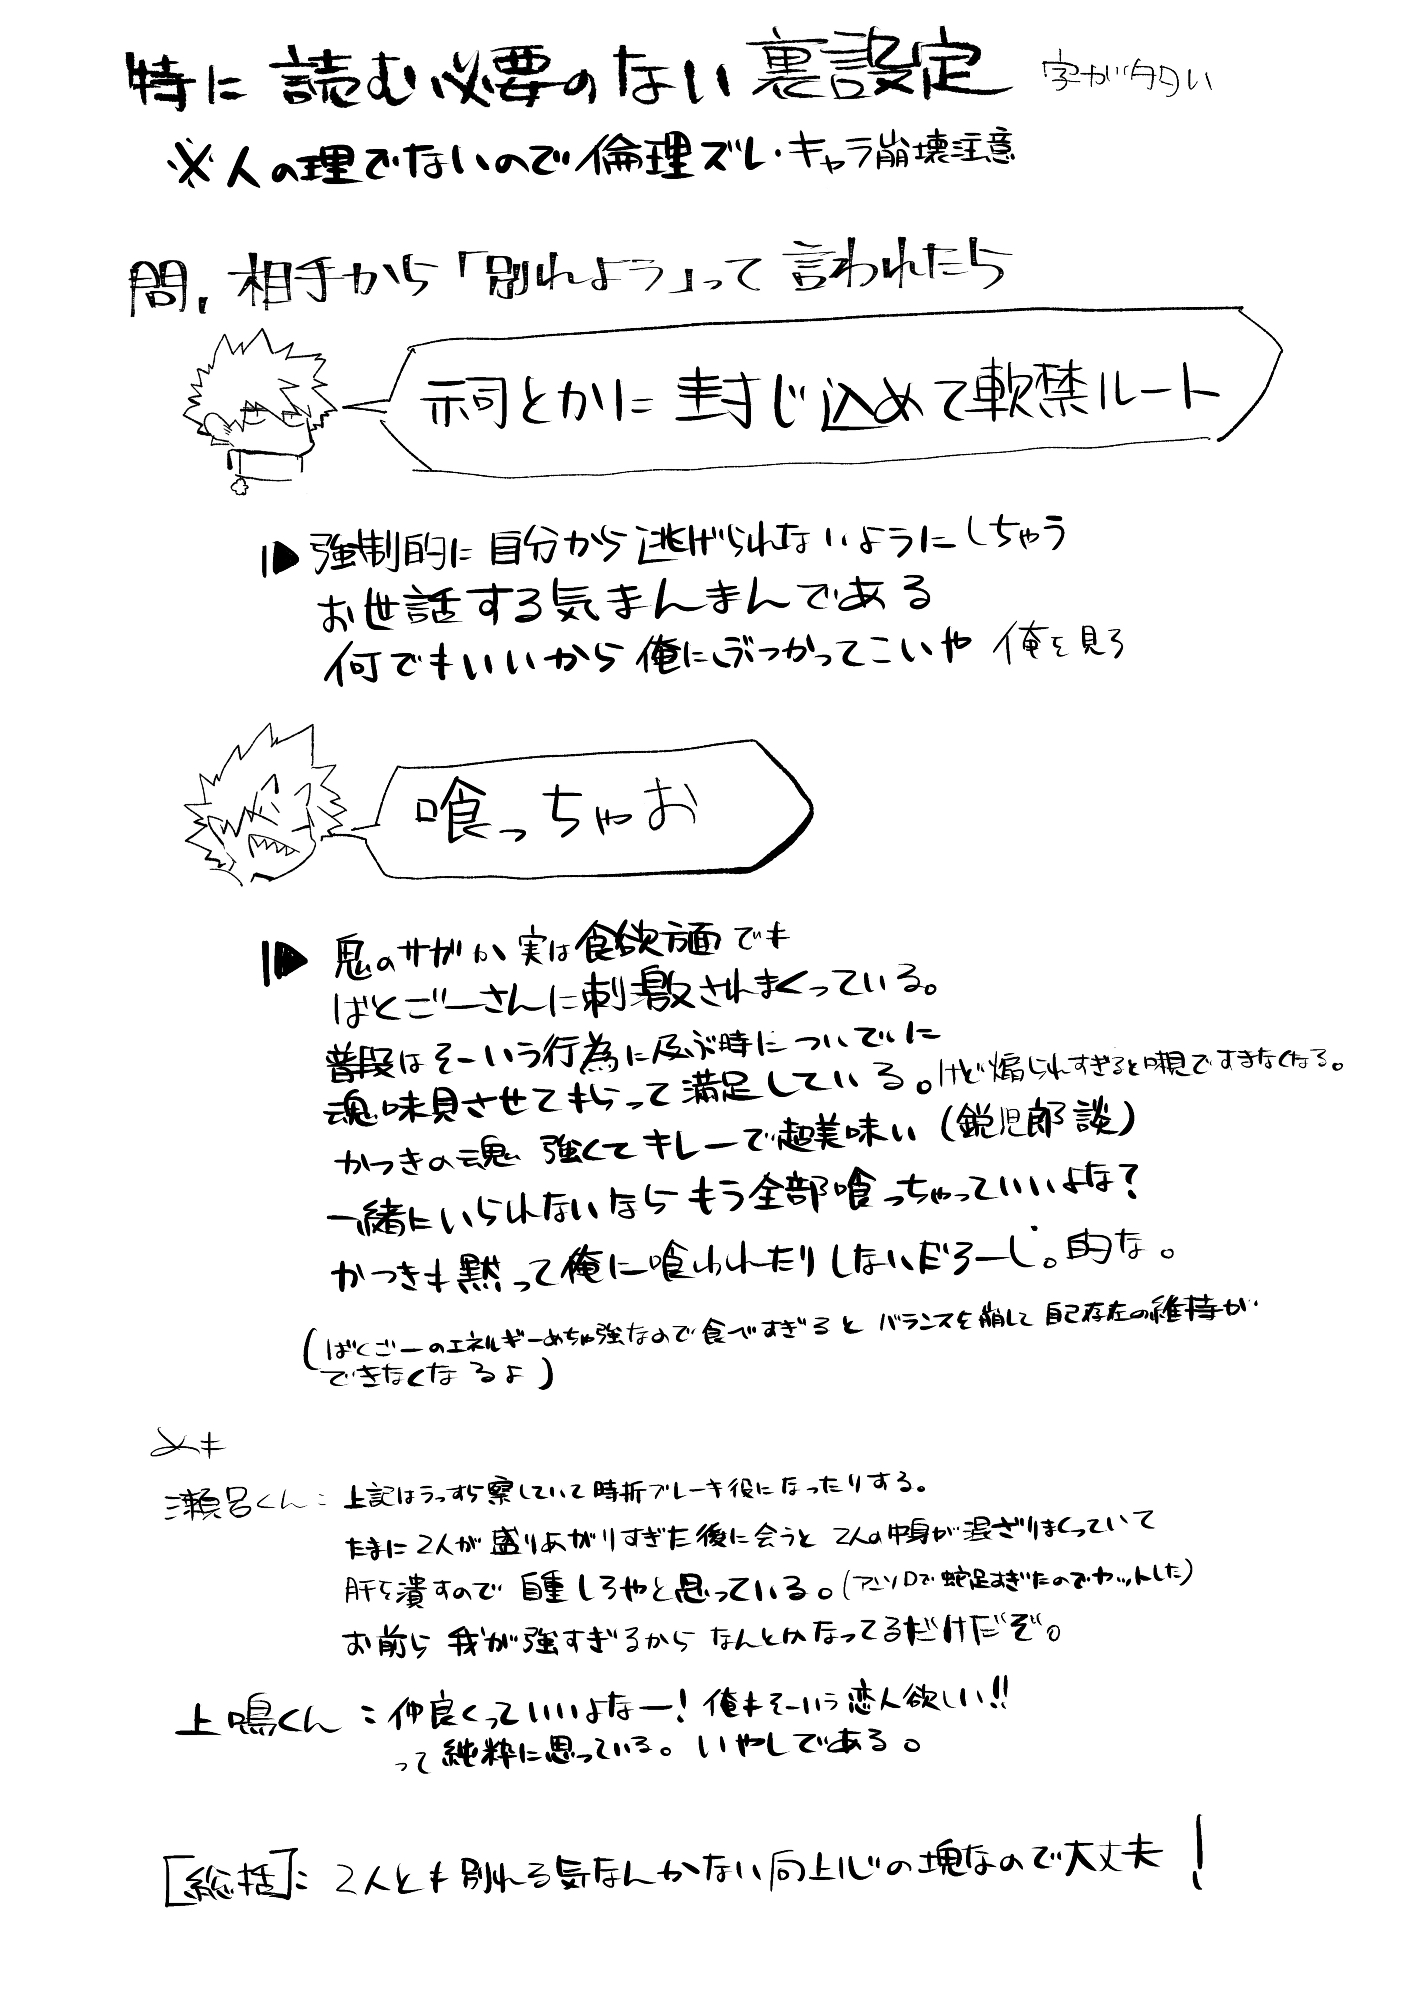 特に読む必要のない裏設定 字が多い
※人の理でないので倫理ズレ・キャラ崩壊注意
問,相手から「別れよう」って言われたら
祠とかに封じ込めて軟禁ルート
強制的に自分から逃げられないようにしちゃう
お世話する気まんまんである
何でもいいから俺にぶつかってこいや 俺を見ろ
喰っちゃお
鬼のサガか実は食欲方面でも
ばくごーさんに刺激されまくっている。
普段はそーいう行為に及ぶ時についでに
魂味見させてもらって満足している。けど煽られすぎると味見ですまなくなる。
かつきの魂 強くてキレーで超美味い(鋭児郎談)
一緒にいられないなら もう全部喰っちゃっていいよな?
かつきも黙って俺に喰われたりしないだろーし。的な。
(ばくごーのエネルギーめちゃ強なので食べすぎると バランスを崩して 自己存在の維持が
できなくなるよ)
メモ
瀬呂くん: 上記はうっすら察していて時折ブレーキ役になったりする。
たまに2人が盛りあがりすぎた後に会うと 2人の中身が混ざりまくっていて
肝を潰すので 自重しろやと思っている。(アンソロで蛇足すぎたのでカットした)
お前ら 我が強すぎるから なんとかなってるだけだぞ。
上鳴くん:仲良くっていいよなー!俺もそーいう恋人欲しい!!
って純粋に思っている。いやしである。
[総括]:2人とも別れる気なんかない向上心の塊なので大丈夫!